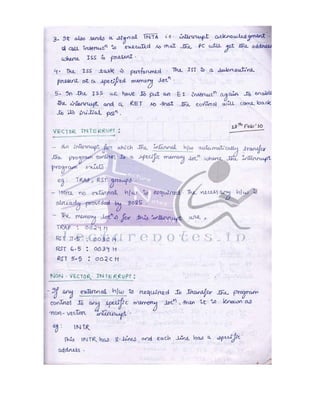 3. It also sends a signal INTA i.e. interrupt acknowledgment.
A call instrucn is executed so that the PC will get the address
where ISS is present.
4. The ISS task is performed. The IST is a subroutine
present at a specified memory locn.
5. In the ISS we have to put an EI instrucn again to enable
the interrupt and a RET so that the control will come back
to its initial posn.
12th Feb'10
VECTOR INTERRUPT:
- An interrupt for which the internal h/w automatically transfer
the program control to a specific memory locn where the interrupt
program exists
eg: TRAP, RST groups
- Here no external h/w is required the necessary h/w is
already provided by 8085
- The memory locns for this interrupt are,
TRAP : 0024 H
RST 7.5 : 003C H
RST 6.5 : 0034 H
RST 5.5 : 002C H
lecturenotes.in
NON-VECTOR INTERRUPT:
If any external h/w is required to transfer the program
control to any specific memory locn, then it is known as
non-vector interrupt.
eg: INTR
This INTR has 8 lines and each line has a specific
address.